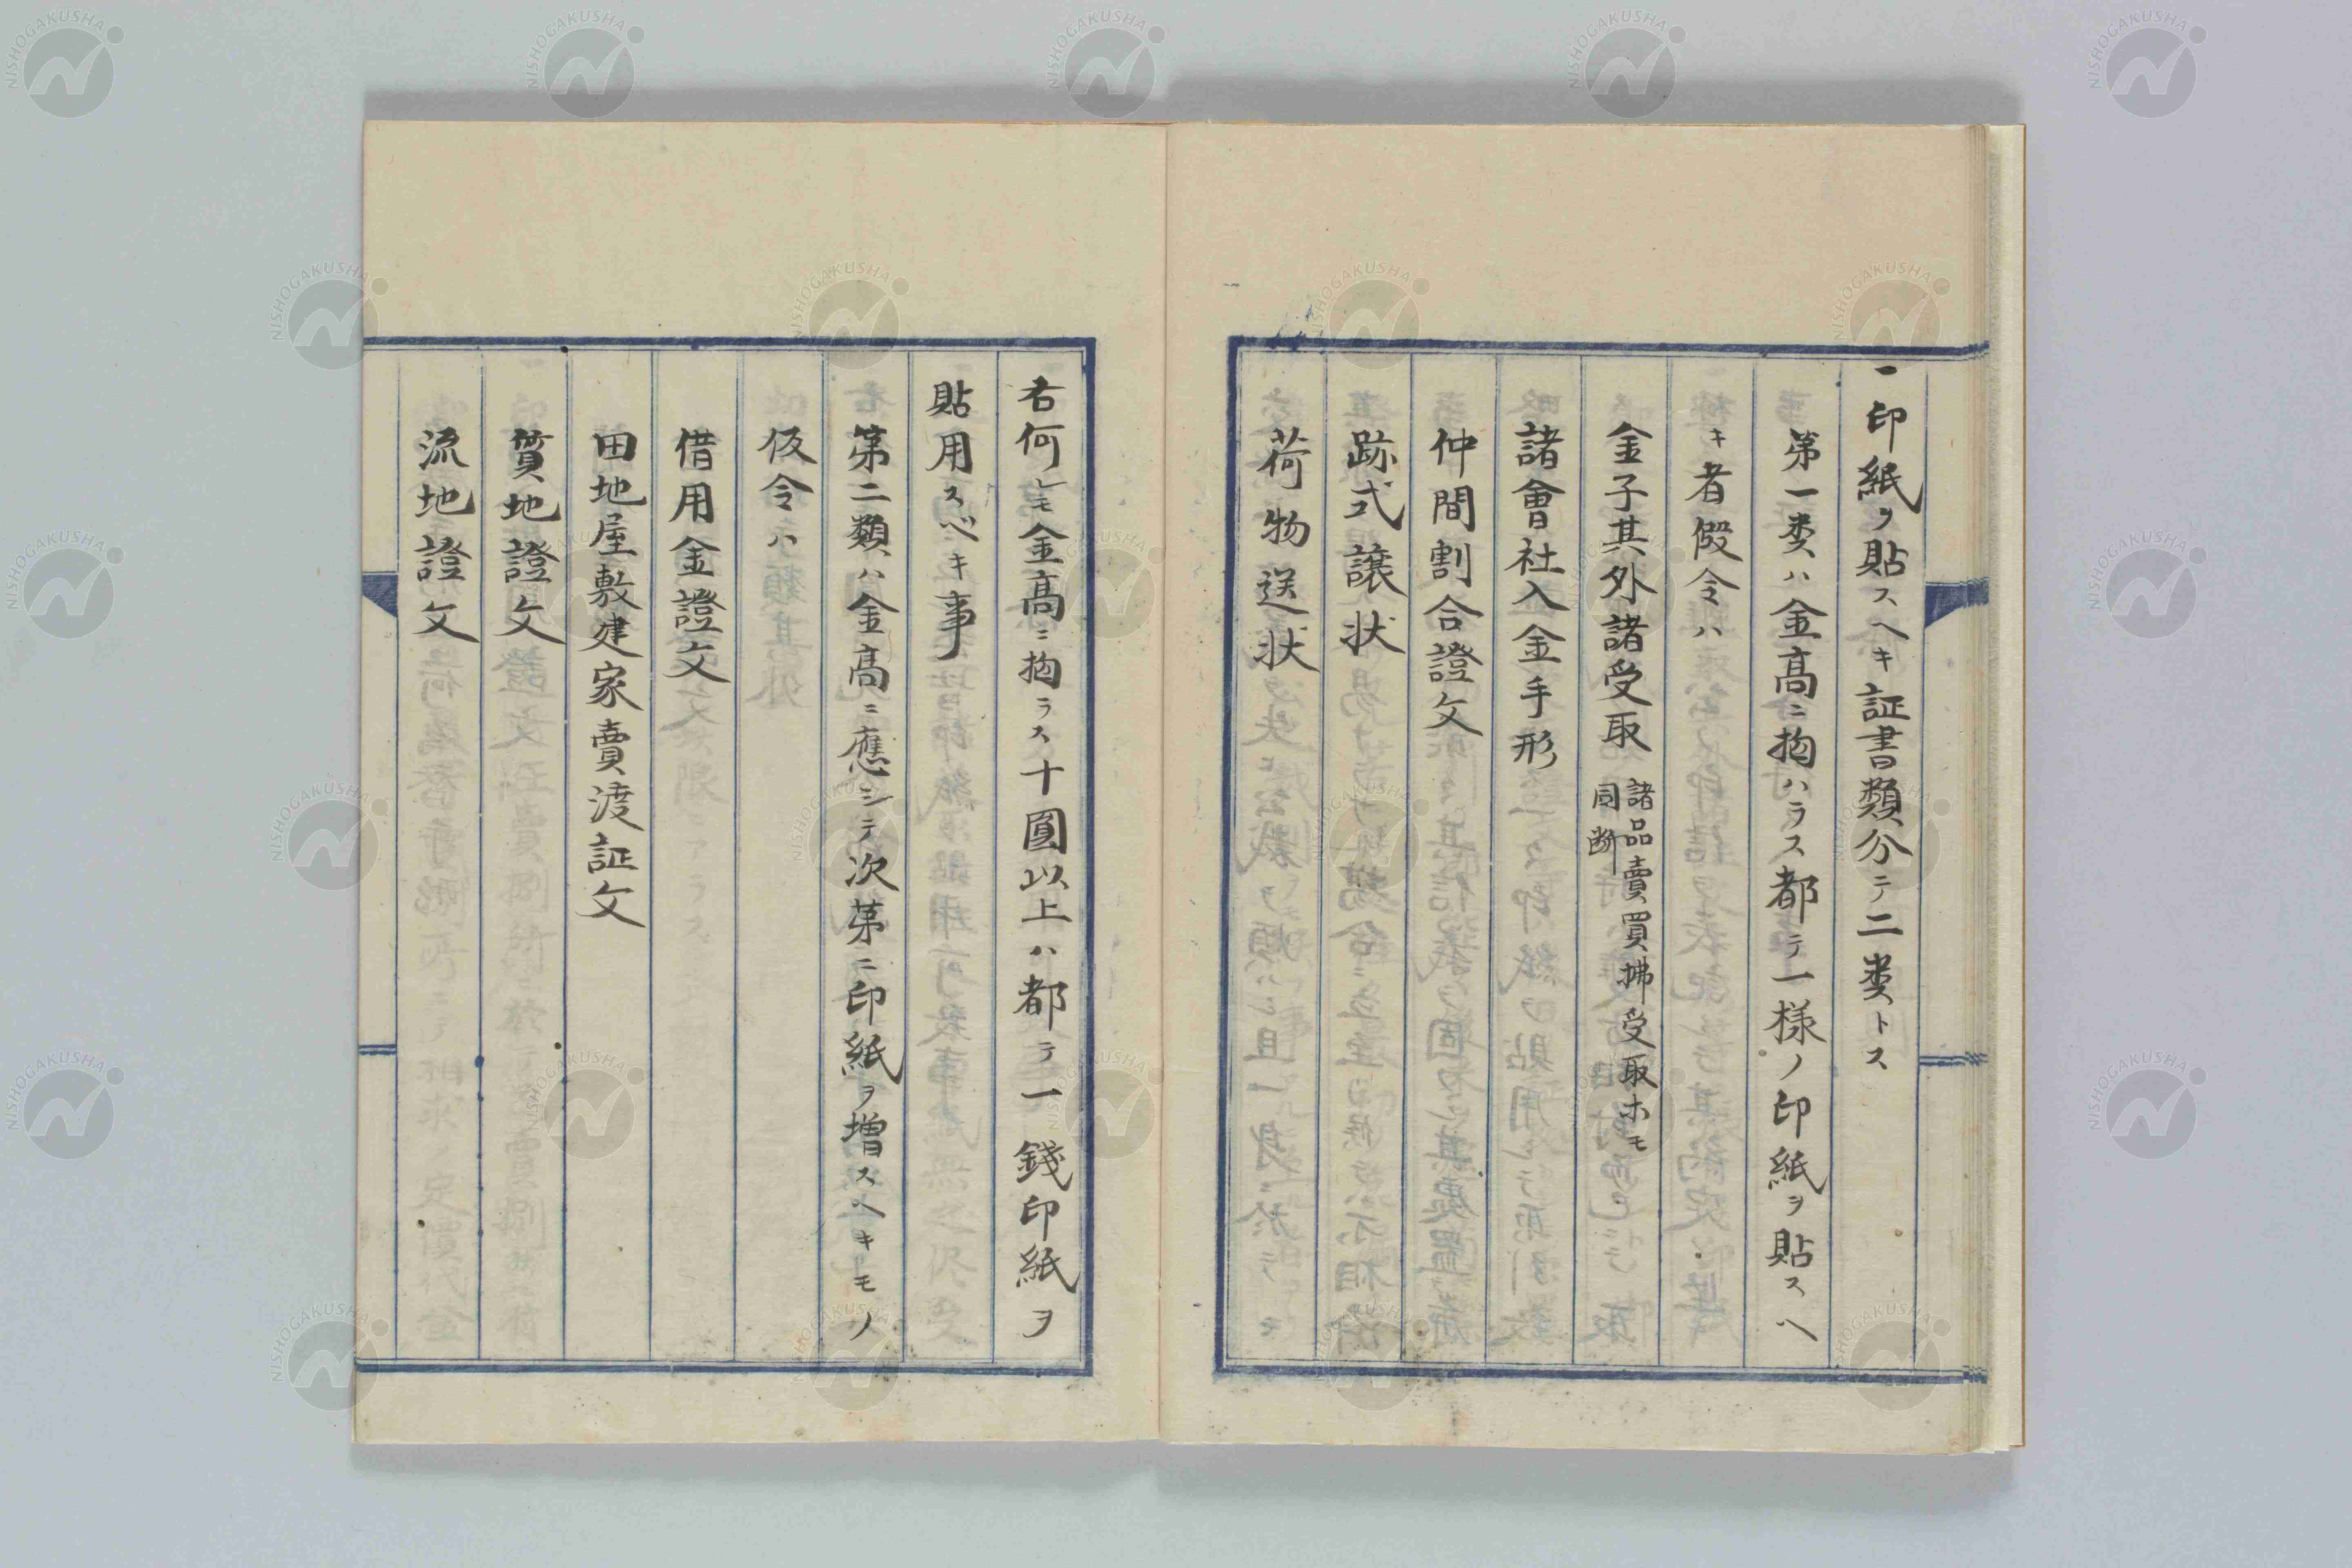 一印紙ヲ貼スヘキ証書類分テ二类トス
第一类ハ金高ニ拘ハラス都テ一様ノ印紙ヲ貼スヘ
キ者假令ハ
金子其外諸受取
諸品賣買拂受取ホモ
同断
諸會社入金手形
仲間割合證文
跡式譲状
荷物送状
右何レモ金高ニ拘ラス十圓以上ハ都テ一錢印紙ヲ
貼用スベキ事
第二類ハ金高ニ應シテ次第ニ印紙ヲ増スヘキモノ
仮令ハ
借用金證文
田地屋敷建家賣渡証文
質地證文
流地證文
NISHOGAKUSHA